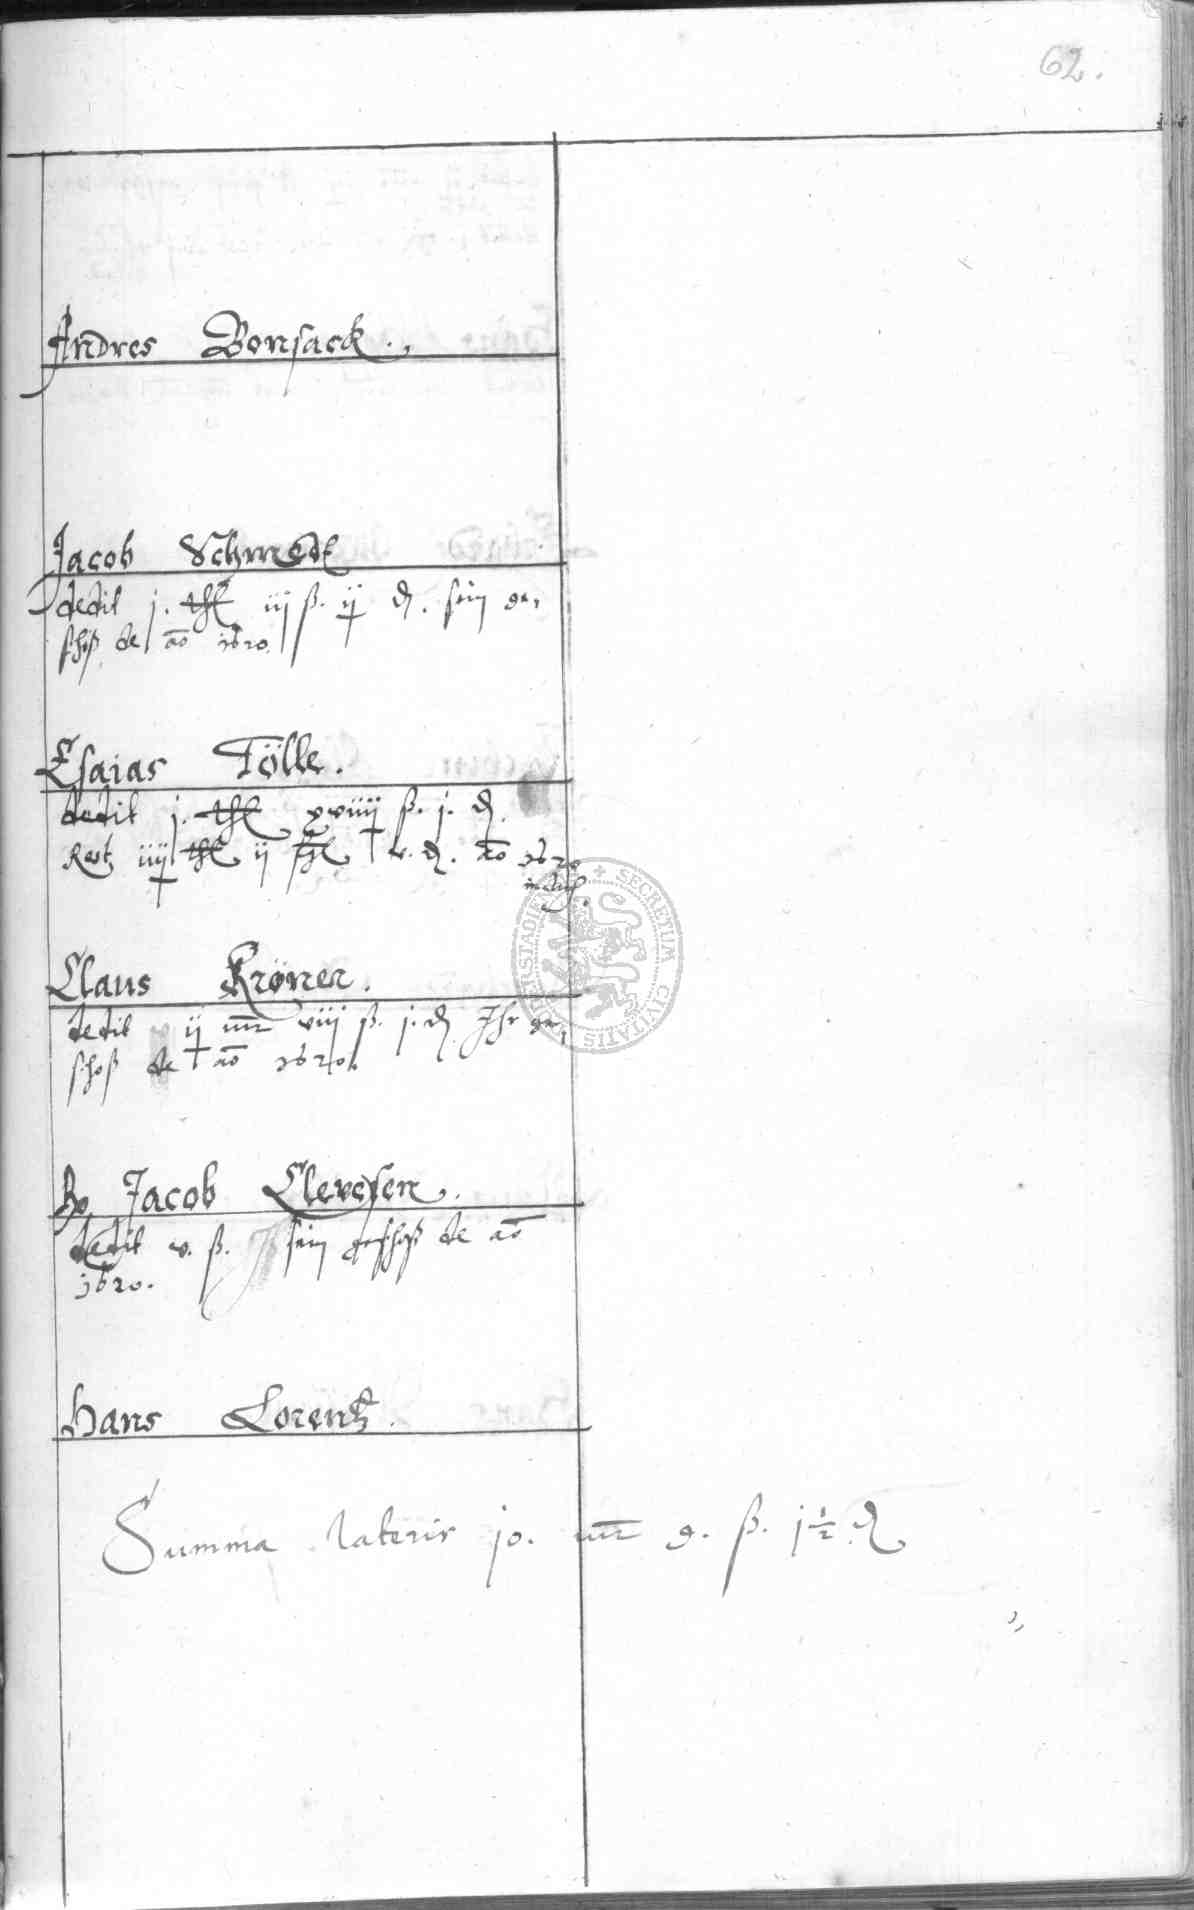 62.
Andres Bonsack.
Jacob Schmedt
dedit j. thl iij ß. ij d. sein ge,
schoß de ao 1620.
Esaias Tölle.
dedit j. thl xviiij ß. j. d.
Rest iiij thl ij ß v. d. ao 1620
Claus Kröner.
dedit ij mr viij ß. j. d Ihr ge,
schoß de ao 1620.
Jacob Clevesen.
dedit v. ß. sein geschoß de ao
1620.
Hans Lorentz.
Summa lateris 10. mr 9. ß. 1½ d
SECRETUM CIVITATIS